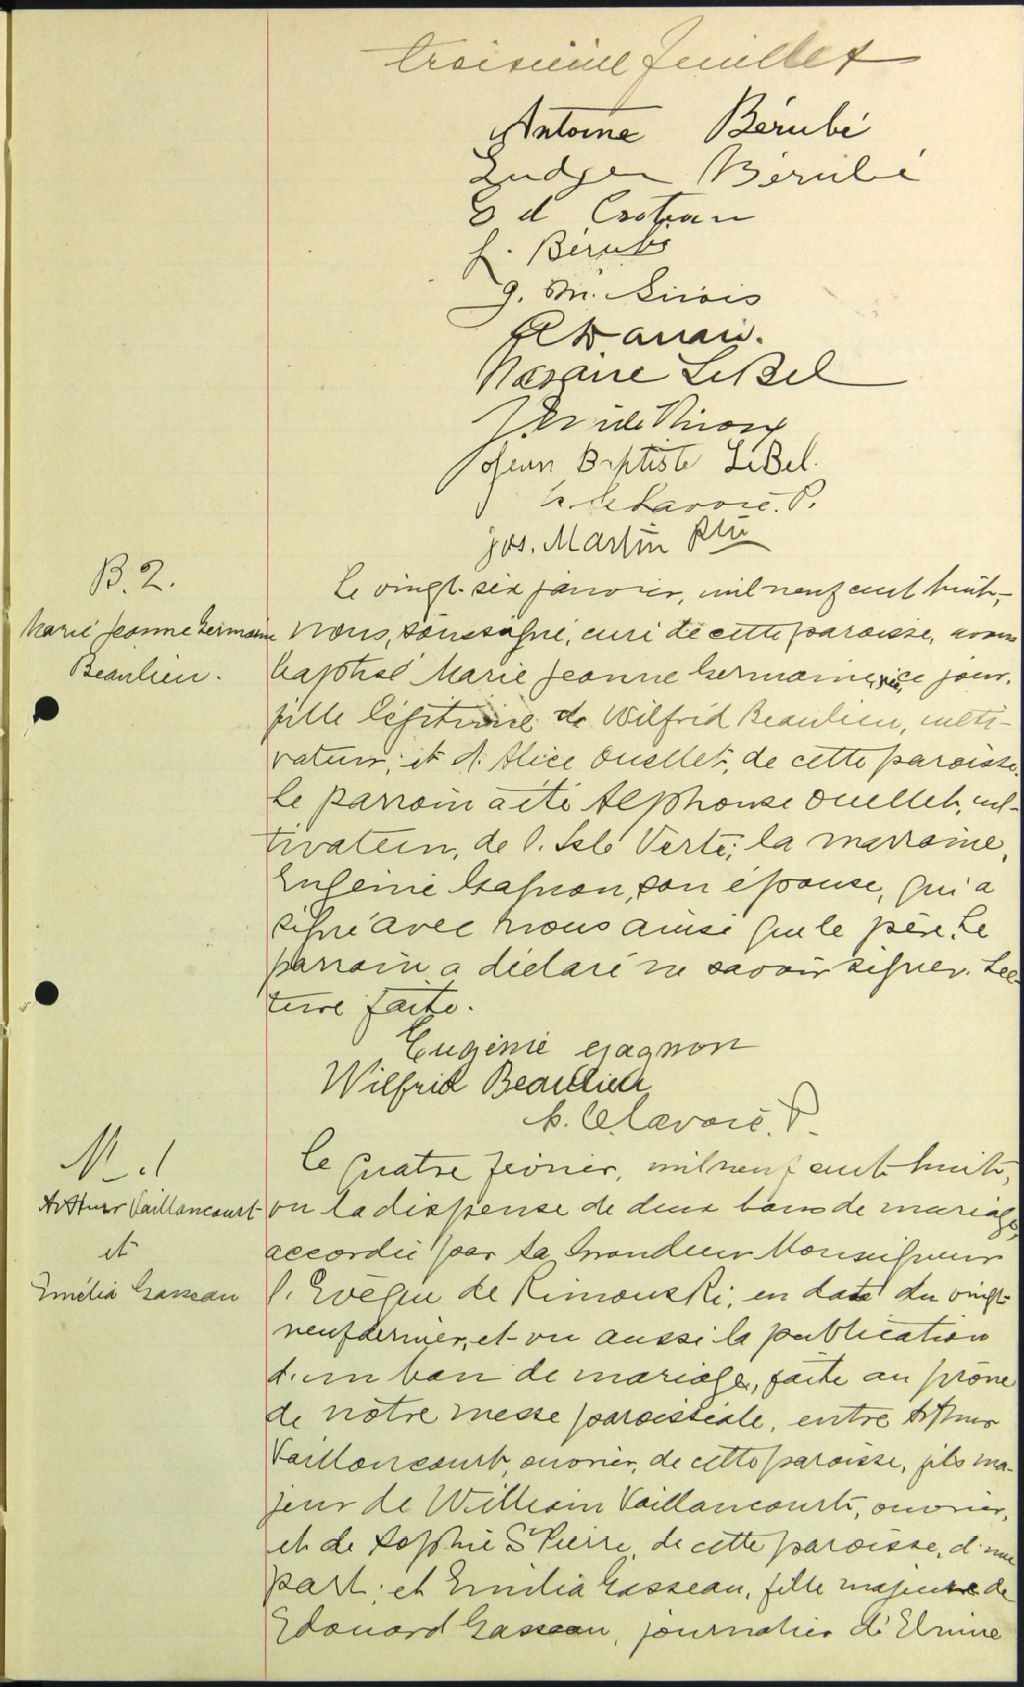 troisième feuillet
Antoine Bérubé
Ludger Bérubé
Ed
L. Bérubé
J. M. Sirois
Nazaire LeBel
Jean Baptiste LeBel.
Lavoie. P.
Jos. Martin Ptre
B. 2.
Marie Jeanne Germaine
Beaulieu.
Le vingt-six janvier, mil neuf cent huit,
nous, soussigné, curé de cette paroisse, avons
baptisé Marie Jeanne Germaine, née ce jour,
fille légitime de Wilfrid Beaulieu, culti-
vateur, et d'Alice Ouellet, de cette paroisse.
Le parrain a été Alphonse Ouellet, cul-
tivateur, de l'Isle Verte; la marraine,
Eugénie Gagnon, son épouse, qui a
signé avec nous ainsi que le père. Le
parrain a déclaré ne savoir signer. Lec-
ture faite.
Eugénie Gagnon
Wilfrid Beaulieu
Lavoie. P.
M. 1
Arthur Vaillancourt
et
Emélia Gasseau
Le quatre février, mil neuf cent huit,
vu la dispense de deux bans de mariage,
accordée par Sa Grandeur Monseigneur
l'Evêque de Rimouski, en date du vingt-
neuf dernier, et vu aussi la publication
d'un ban de mariage, faite au prône
de notre messe paroissiale, entre Arthur
Vaillancourt, ouvrier, de cette paroisse, fils ma-
jeur de William Vaillancourt, ouvrier,
et de Sophie St Pierre, de cette paroisse, d'une
part; et Emélia Gasseau, fille majeure de
Edouard Gasseau, journalier d'Elmire